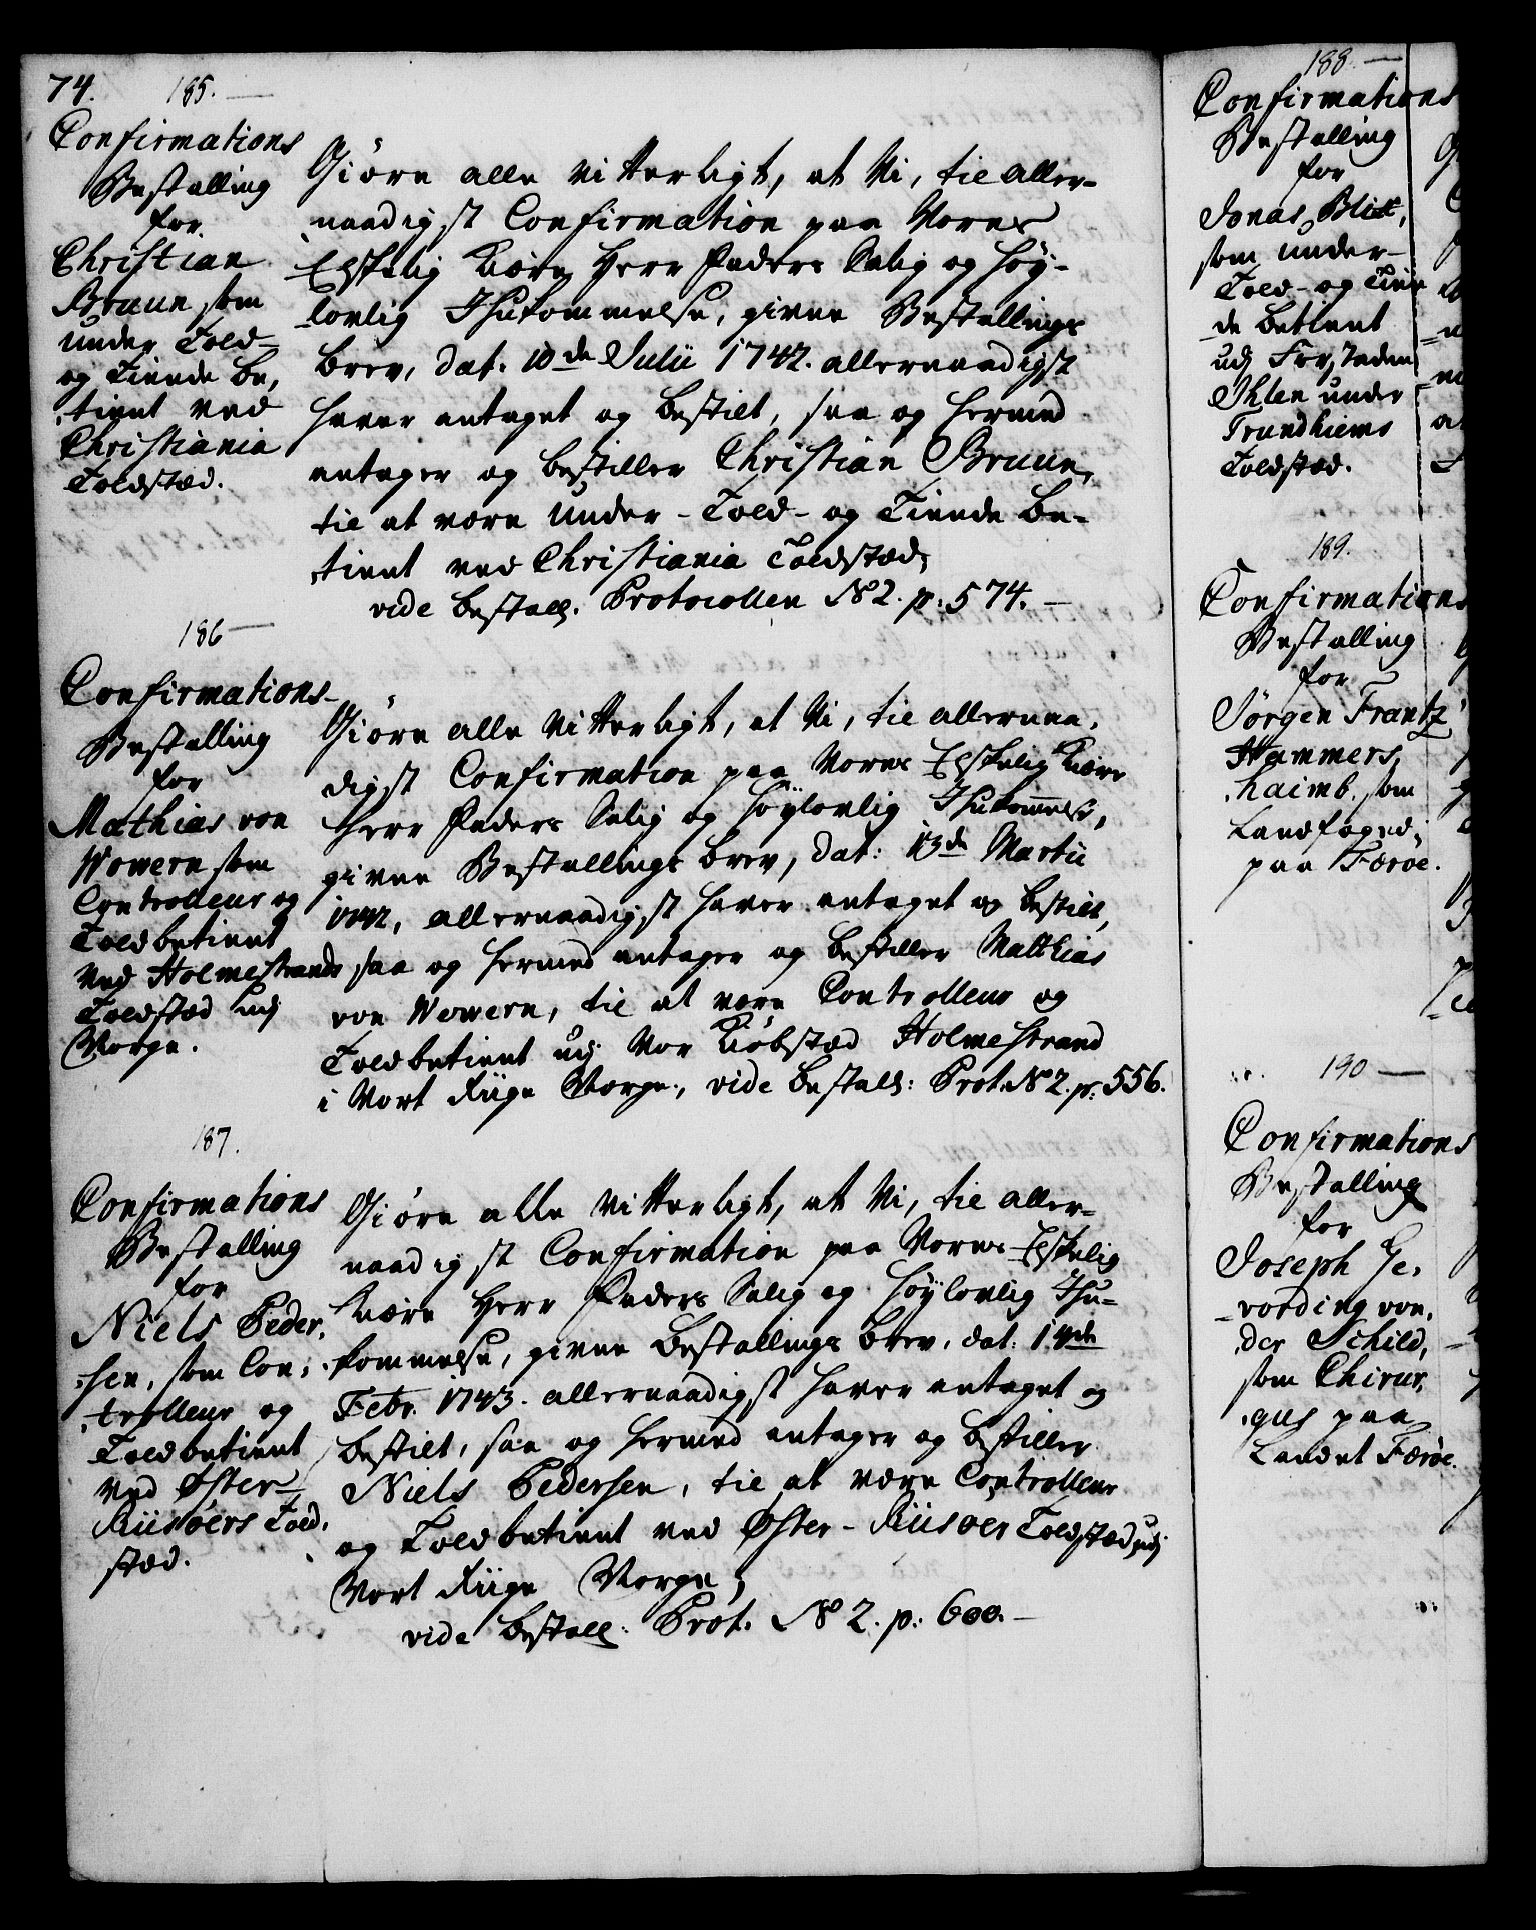 74.
185.
Confirmations
Bestalling
for
Christian
Bruun som
under Told-
og Tiende be,
tient ved
Christiania
Toldstæd.
Giøre alle Vitterligt, at Vi, til aller-
naadigst Confirmation paa Vores
Elskelig Kiære Herr Faders Salig og Høy-
lovlig Ihukommelse, givne Bestallings
brev, dat: 10de Julii 1742. allernaadigst
haver antaget og bestilt, saa og hermed
antager og bestiller Christian Bruun,
til at være Under-Told- og Tiende be-
tient ved Christiania Toldstæd,
vide bestall. Protocollen No 2. p. 574.
186
Confirmations
Bestalling
for
Mathias von
Wowern som
Controlleur og
Toldbetient
ved Holmestrands
Toldstæd udj
Norge.
Giøre alle Vitterligt, at Vi, til allernaa-
digst Confirmation paa Vores Elskelig Kiære
Herr Faders Salig og Høylovlig Ihukommelse,
givne Bestallings brev, dat: 13de Martii
1742, allernaadigst haver antaget og bestilt,
saa og hermed antager og bestiller Matthias
von Wowern, til at være Controlleur og
Toldbetient udj Vor Kiøbstæd Holmestrand
i Vort Riige Norge, vide bestall: Prot. No 2. p: 556.
187.
Confirmations
Bestalling
for
Niels Peder,
sen, som Con,
trolleur og
Toldbetient
ved Øster-
Riisøers Told,
stæd.
Giøre alle Vitterligt, at Vi, til aller-
naadigst Confirmation paa Vores Elskelig
Kiære Herr Faders Salig og Høylovlig Ihu-
kommelse, givne Bestallings brev, dat: 14de
Febr. 1743. allernaadigst haver antaget og
bestilt, saa og hermed antager og bestiller
Niels Pedersen, til at være Controlleur
og Toldbetient ved Øster-Riisøer Toldstæd udj
Vort Riige Norge,
vide bestall: Prot. No 2. p: 600.
188.
Confirmations
Bestalling
for
Jonas Blix,
som under-
Told- og Tien
de betient
udj Forstaden
Ihlen under
Trundhiems
Toldstæd.
189.
Confirmations
Bestalling
for
Jørgen Frantz
Hammers,
haimb, som
Landfoged,
paa Færöe.
190
Confirmations
Bestalling
for
Joseph Ge,
vording von,
der Schild,
som Chirur,
gus paa
Landet Færöe.